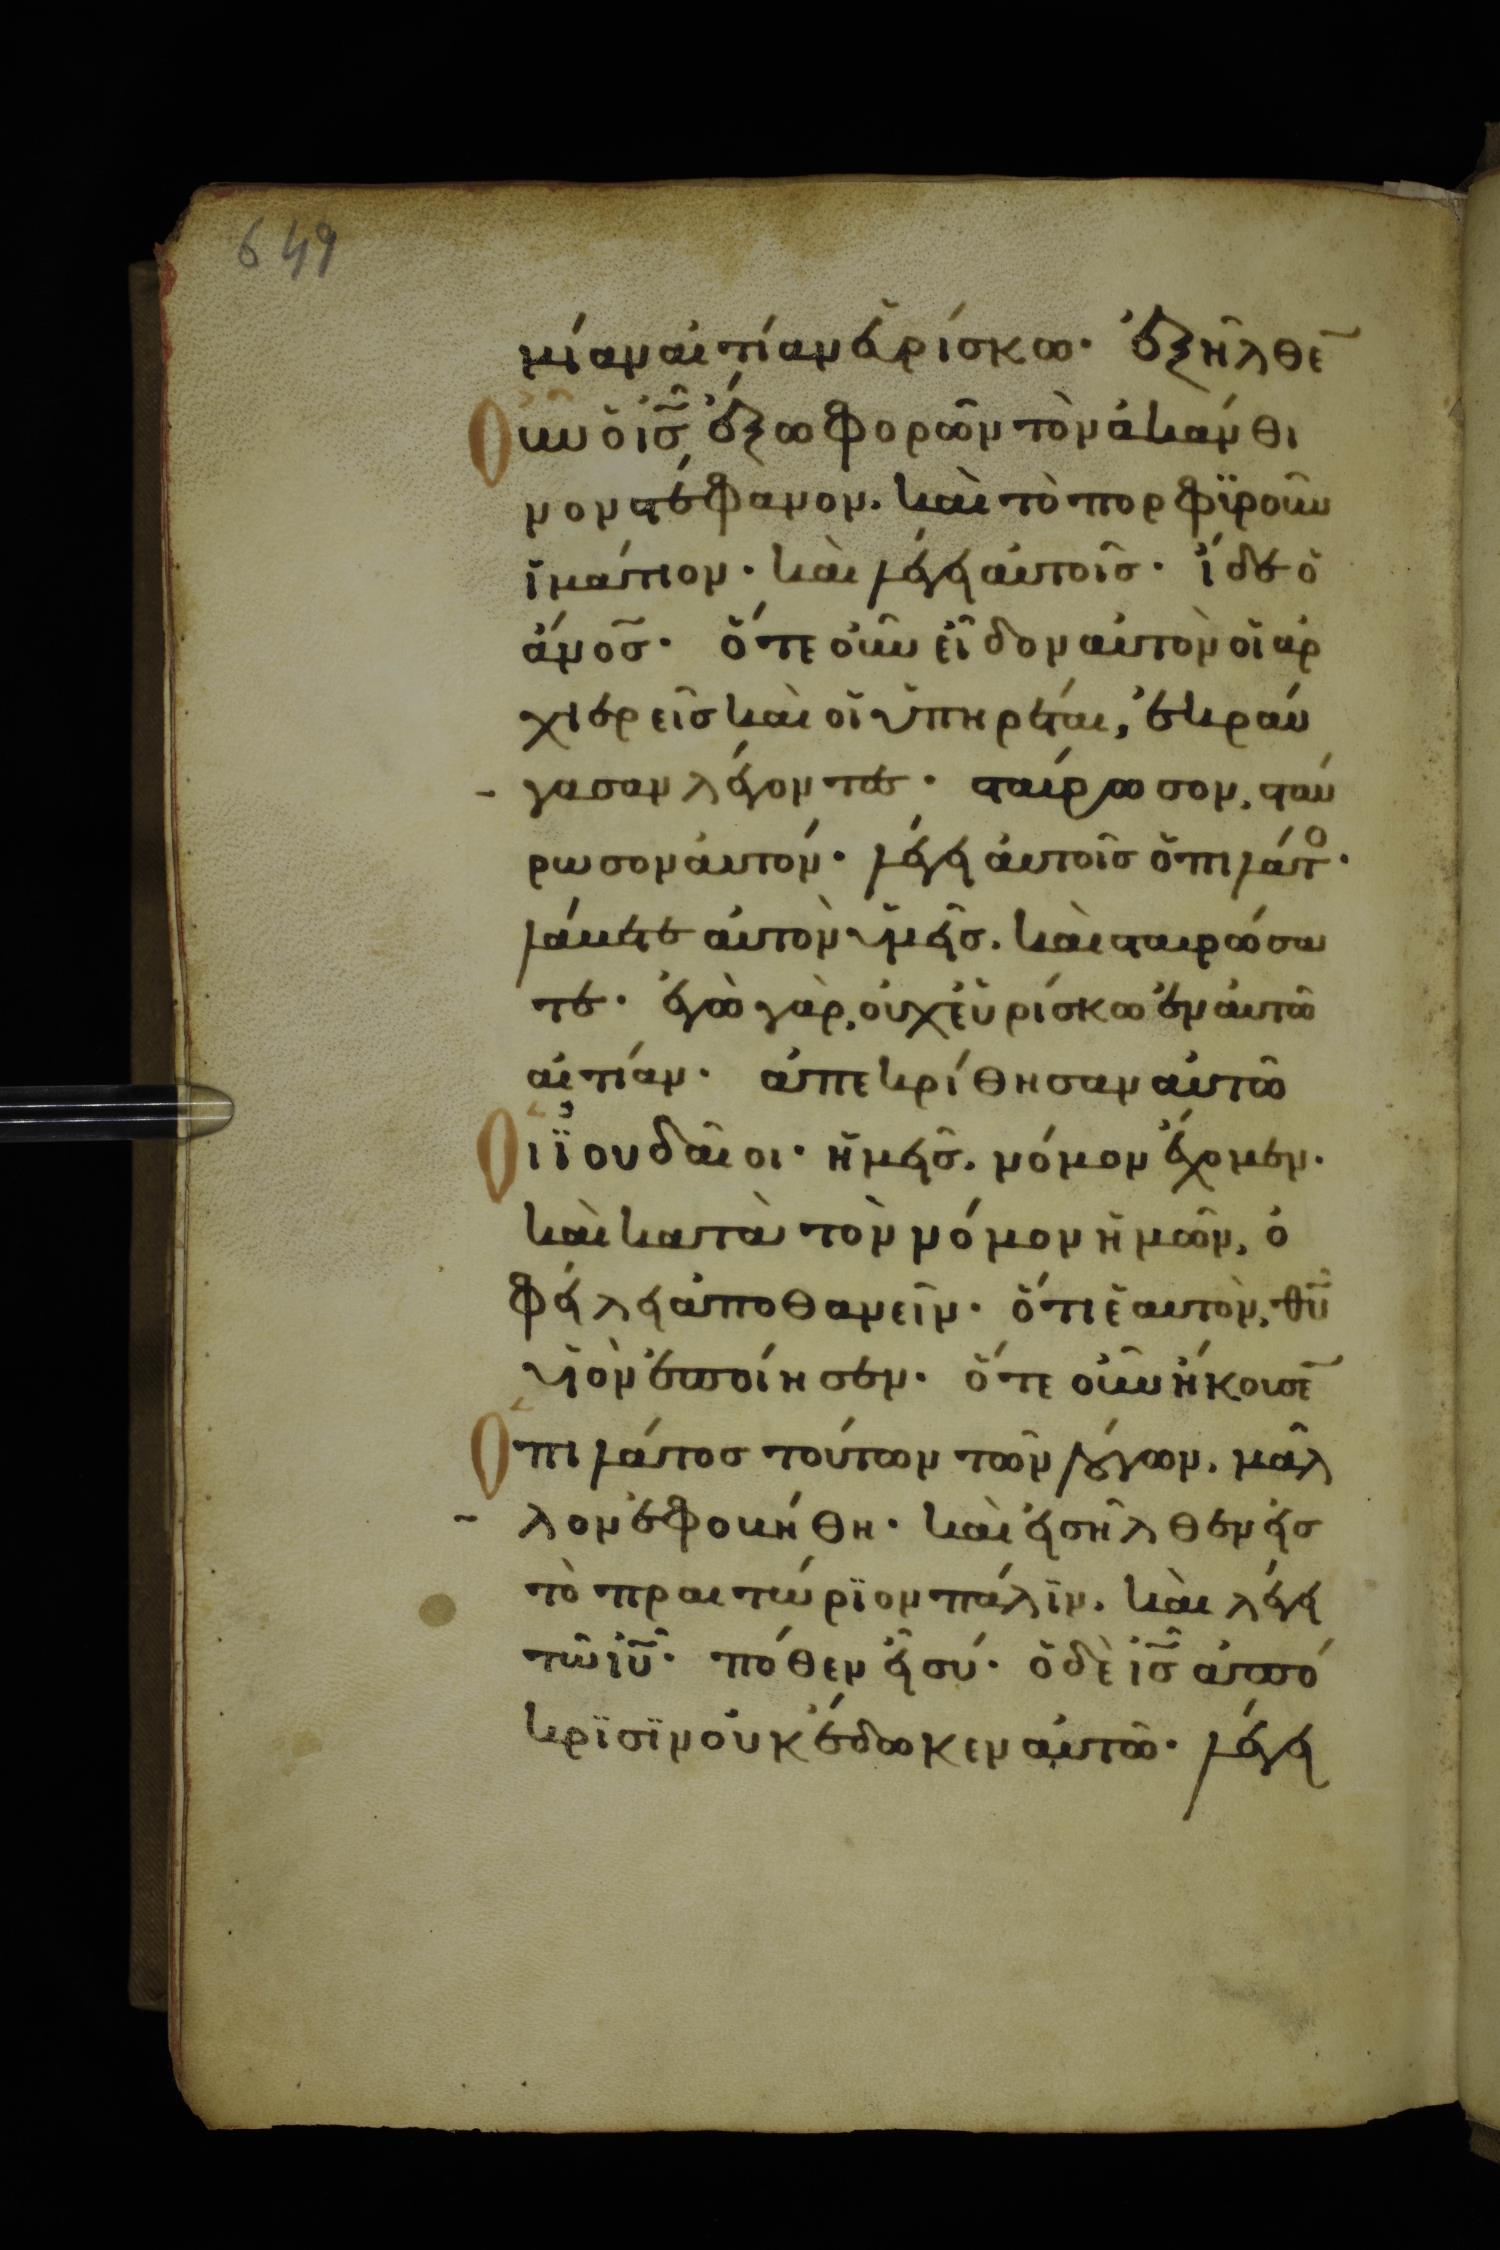 649
μίαν αἰτίαν εὑρίσκω· ἐξῆλθε̅
Οὖν ὁ ἰς̅ ἔξω φορῶν τὸν ἀκάνθι
νον στέφανον. καὶ τὸ πορφϊροῦν
ἱμάτιον· καὶ λέγει αὐτοῖς· ἴδε ὁ
ἄνος̅· ὅτε οὖν εἶδον αὐτὸν οἱ ἀρ
χιερεῖς καὶ οἱ ὑπηρέται, ἐκραύ
γασαν λέγοντες· σταύρωσον, σταύ
ρωσον αὐτόν· λέγει αὐτοῖς ὁ πιλάτο·
λάβετε αὐτὸν ὑμεῖς. καὶ σταυρώσα
τε· ἐγὼ γὰρ, οὐχ εὑρίσκω ἐν αὐτῶ
αἰτίαν· ἀπεκρίθησαν αὐτῶ
Οἱ ἰουδαῖοι· ἡμεῖς. νόμον ἔχομεν·
καὶ κατὰ τὸν νόμον ἡμῶν, ὀ
φείλει ἀποθανεῖν· ὅτι ἑαυτὸν, θυ̅
υἱὸν ἐποίησεν· ὅτε οὖν ἤκουσε̅
Ὁ πιλάτος τούτων τῶν λόγων. μᾶλ
λον ἐφοβήθη· καὶ εἰσῆλθεν εἰς
τὸ πραιτώριον πάλϊν. καὶ λέγει
τῶ ἰυ̅· πόθεν εἶ σύ· ὁ δὲ ἰς̅ ἀπό
κρϊσϊν οὐκ ἔδωκεν αὐτῶ· λέγει